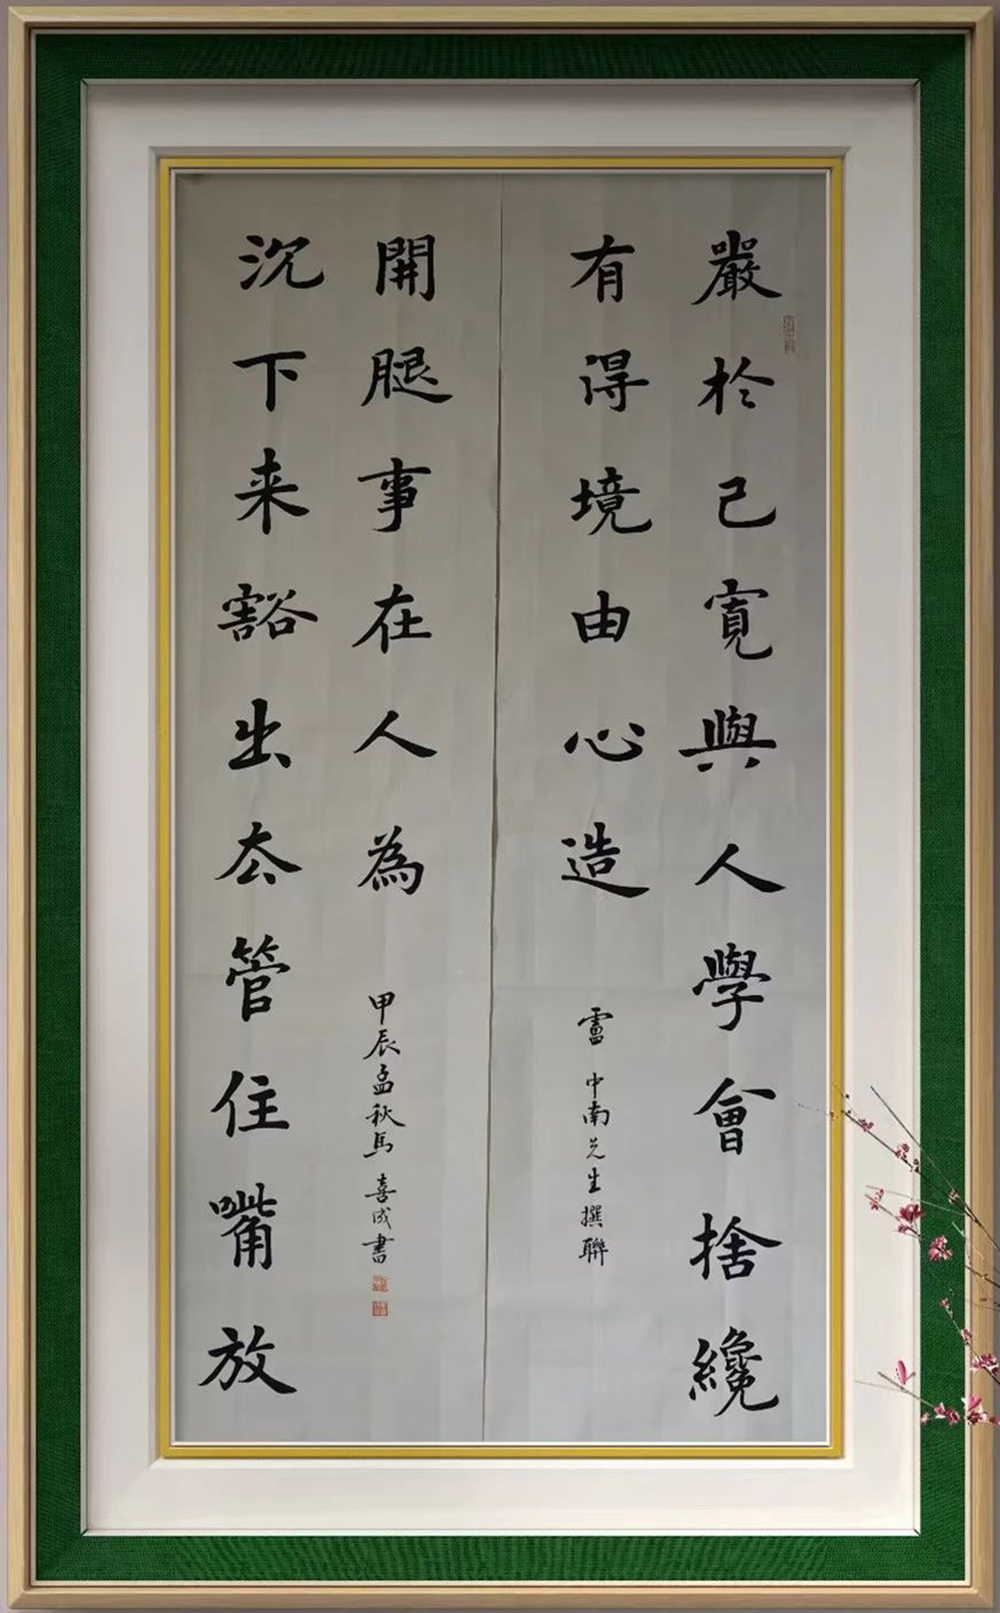 嚴於己寬與人學會捨纔
有得境由心造
盧中南先生撰聯
沉下来豁出去管住嘴放
開腿事在人為
甲辰孟秋馬喜成書